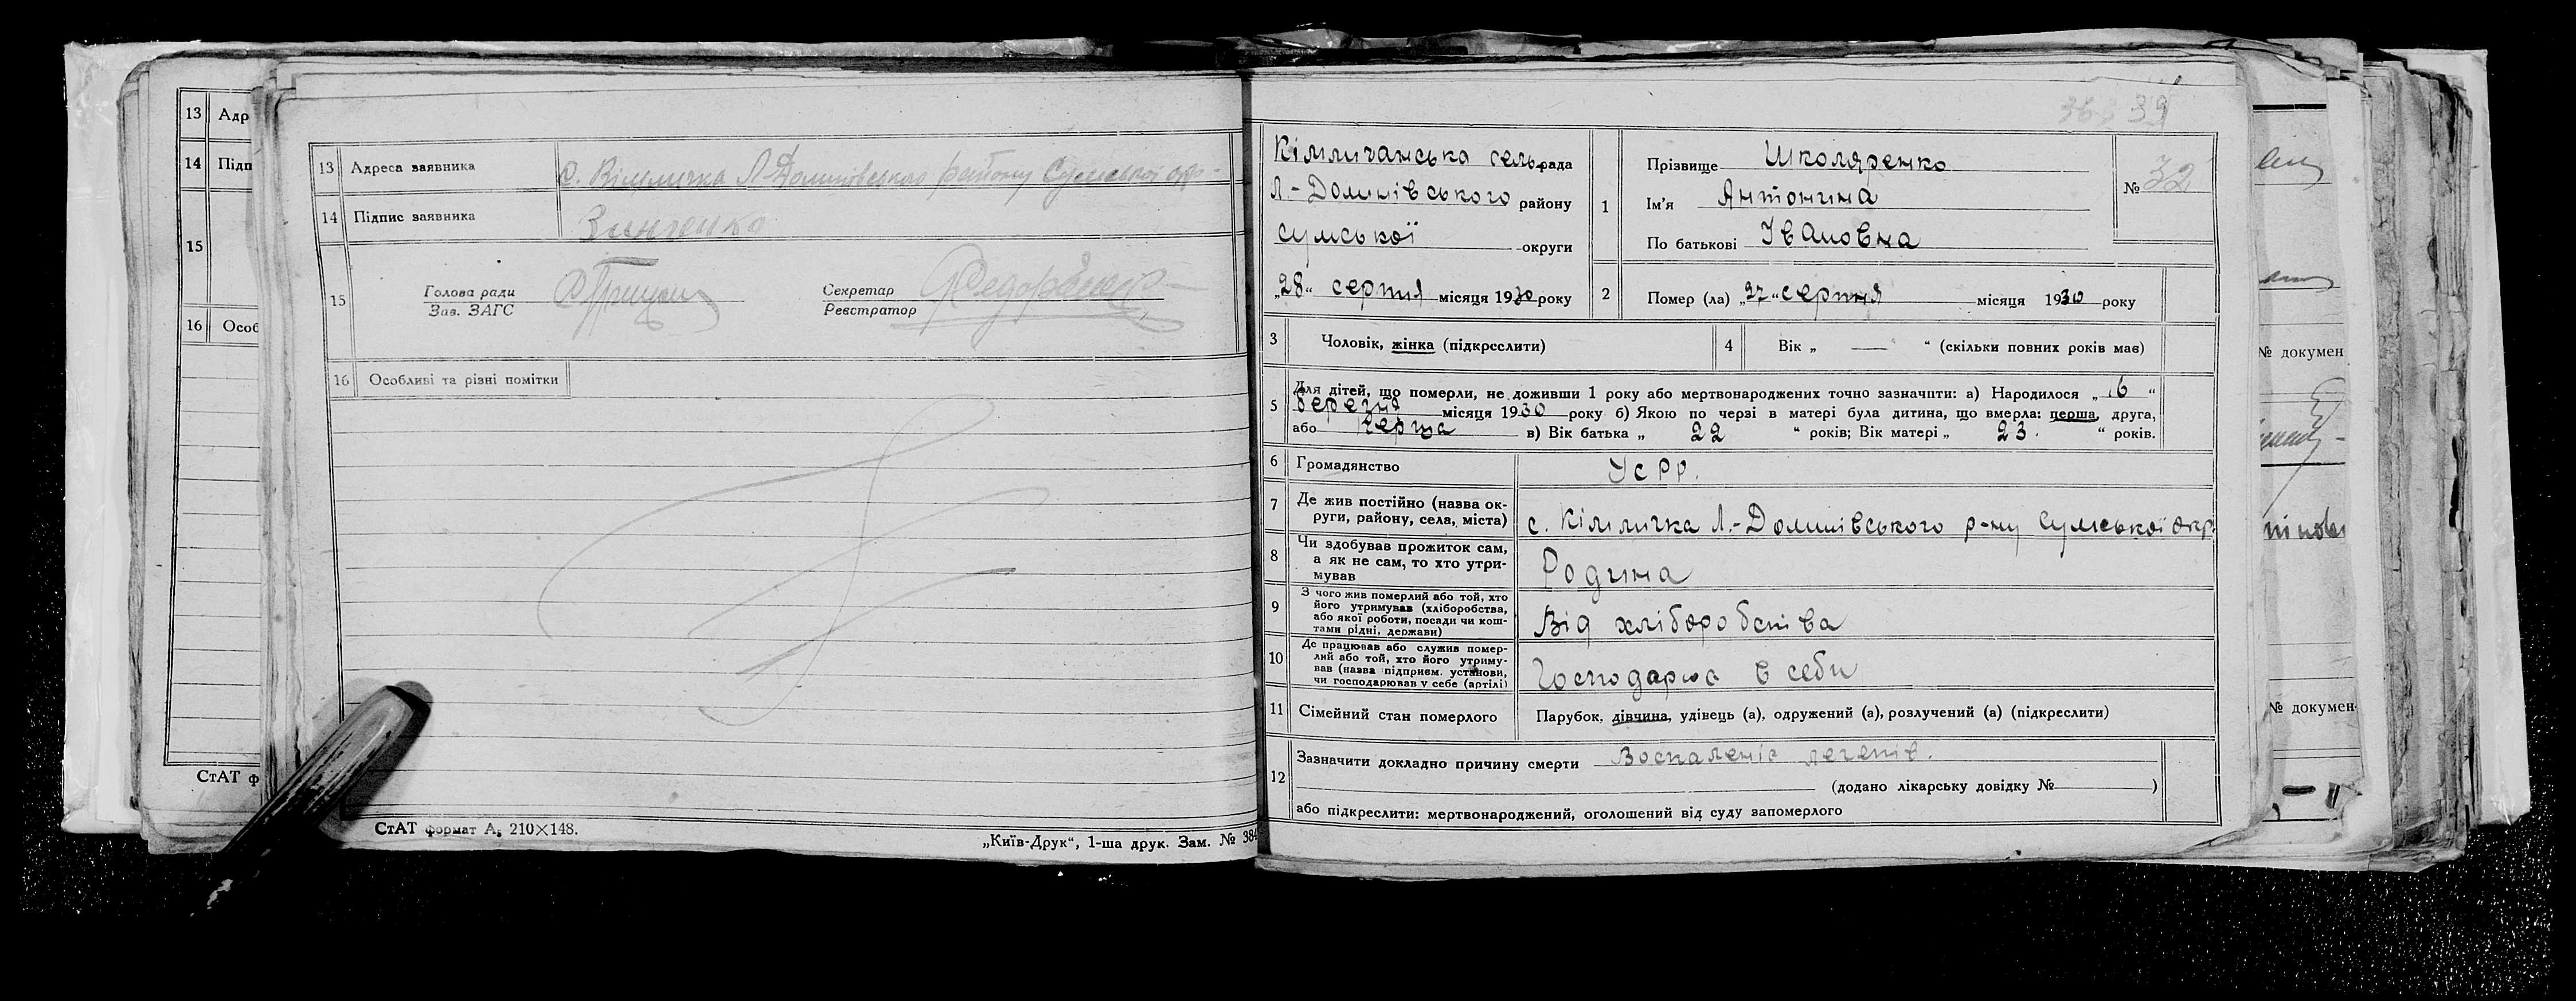 13 Адр
14 Підп
15
16 Особ
СтАТ ф
13 Адреса заявника с. Кімличка Л-Долинівського району Сумської окр-
14 Підпис заявника Зинченко
15 Голова ради
Зав. ЗАГС
Секретар
Реєстратор
16 Особливі та різні помітки
СтАТ формат А₅ 210×148.
„Київ-Друк“, 1-ша друк. Зам. № 384
39
Кімличанська сельрада
Л-Долинівського району
Сумської округи
„28“ серпня місяця 1930 року
1 Прізвище Школяренко
Ім'я Антонина
По батькові Івановна
№ 32
2 Помер (ла) „27“ серпня місяця 1930 року
3 Чоловік, жінка (підкреслити)
4 Вік „ — “ (скільки повних років мав)
5 Для дітей, що померли, не доживши 1 року або мертвонароджених точно зазначити: а) Народилося „16“
березня місяця 1930 року б) Якою по черзі в матері була дитина, що вмерла: перша, друга,
або перша в) Вік батька „ 22 “ років; Вік матері „ 23. “ років.
6 Громадянство УСРР.
7 Де жив постійно (назва ок-
руги, району, села, міста) с. Кімличка Л.-Долинівського р-ну Сумської окр.
8 Чи здобував прожиток сам,
а як не сам, то хто утри-
мував Родина
9 З чого жив померлий або той, хто
його утримував (хліборобства,
або якої роботи, посади чи кош-
тами рідні, держави) Від хліборобства
10 Де працював або служив помер-
лий або той, хто його утриму-
вав (назва підприєм. установи,
чи господарював у себе (артілі) Господарює в себи
11 Сімейний стан померлого Парубок, дівчина, удівець (а), одружений (а), розлучений (а) (підкреслити)
12 Зазначити докладно причину смерти Воспаленіє легенів.
(додано лікарську довідку № )
або підкреслити: мертвонароджений, оголошений від суду запомерлого
№ докумен
№ докумен